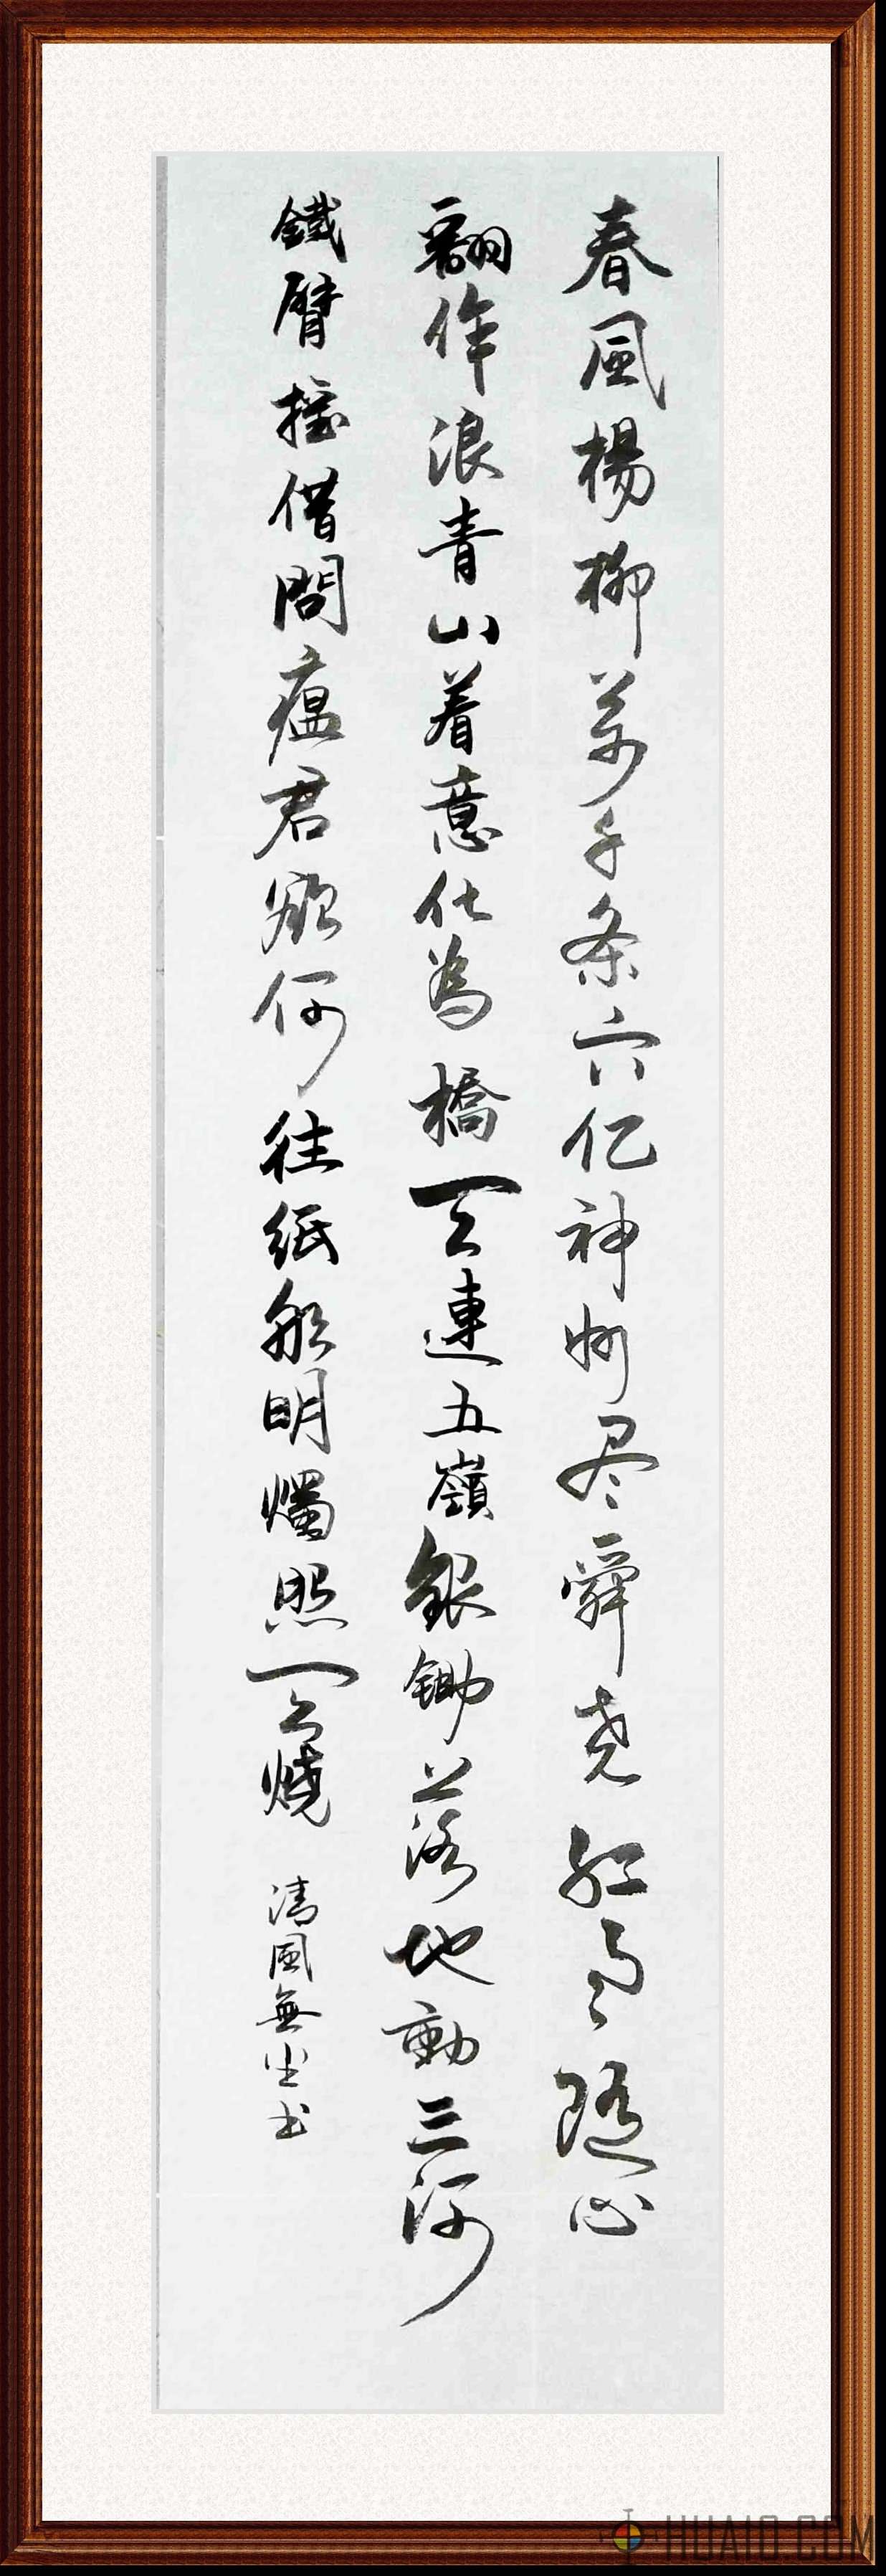 春風楊柳萬千条六亿神州尽舜尧紅雨随心
翻作浪青山着意化為橋天連五嶺銀锄落地動三河
鐵臂摇借問瘟君欲何往纸船明燭照天燒
清風無尘书
HUAIO.COM